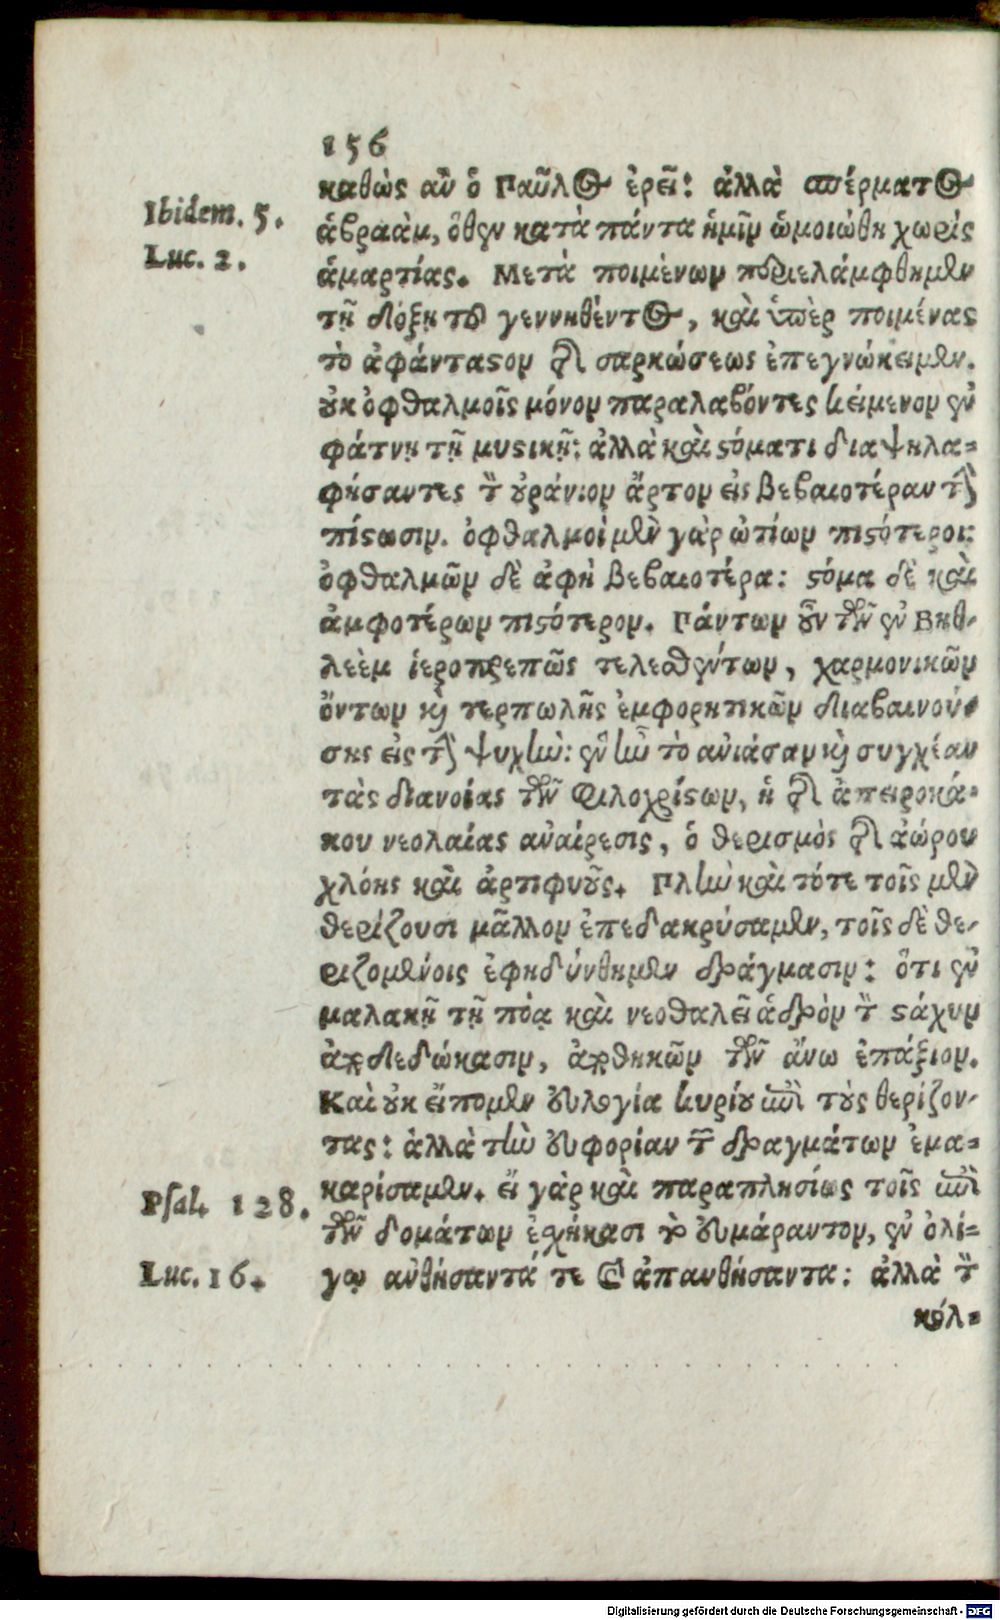 156
καθὼς ἂν ὁ Παῦλος ἐρεῖ: ἀλλὰ σπέρματος
Ibidem. 5.
ἀβραὰμ, ὅθεν κατὰ πάντα ἡμῖν ὡμοιώθη χωρὶς
Luc. 2.
ἁμαρτίας. Μετὰ ποιμένων περιελάμφθημεν
τῇ δόξῃ τοῦ γεννηθέντος, καὶ ὑπὲρ ποιμένας
τὸ ἀφάνταστον τῆς σαρκώσεως ἐπεγνώκειμεν.
οὐκ ὀφθαλμοῖς μόνον παραλαβόντες κείμενον ἐν
φάτνῃ τῇ μυστικῇ: ἀλλὰ καὶ στόματι διαψηλα=
φήσαντες τὸν οὐράνιον ἄρτον εἰς βεβαιοτέραν τὴν
πίστωσιν. ὀφθαλμοὶ μὲν γὰρ ὠτίων πιστότεροι:
ὀφθαλμῶν δὲ ἀφὴ βεβαιοτέρα: στόμα δὲ καὶ
ἀμφοτέρων πιστότερον. Πάντων οὖν τῶν ἐν Βηθ-
λεὲμ ἱεροπρεπῶς τελεσθέντων, χαρμονικῶν
ὄντων καὶ τερπωλῆς ἐμφορητικῶν διαβαινού=
σης εἰς τὴν ψυχὴν: ἓν ἦν τὸ ἀνιάσαν καὶ συγχέαν
τὰς διανοίας τῶν Φιλοχρίστων, ἡ τῆς ἀπειροκά=
κου νεολαίας ἀναίρεσις, ὁ θερισμὸς τῆς ἀώρου
χλόης καὶ ἀρτιφυοῦς. Πλὴν καὶ τότε τοῖς μὲν
θερίζουσι μᾶλλον ἐπεδακρύσαμεν, τοῖς δὲ θε-
ριζομένοις ἐφηδύνθημεν δράγμασιν: ὅτι ἐν
μαλακῇ τῇ πόᾳ καὶ νεοθαλεῖ ἁδρὸν τὸν στάχυν
ἀποδεδώκασιν, ἀποθηκῶν τῶν ἄνω ἐπάξιον.
Καὶ οὐκ εἴπομεν εὐλογία κυρίου ἐπὶ τοὺς θερίζον-
τας: ἀλλὰ τὴν εὐφορίαν τῶν δραγμάτων ἐμα=
Psal. 128.
καρίσαμεν. εἴ γὰρ καὶ παραπλησίως τοῖς ἐπὶ
τῶν δομάτων ἐχήκασι τὸ εὐμάραντον, ἐν ὀλί=
Luc. 16.
γῳ ἀνθήσαντά τε καὶ ἀπανθήσαντα: ἀλλὰ τὸν
κόλ=
Digitalisierung gefördert durch die Deutsche Forschungsgemeinschaft - DFG